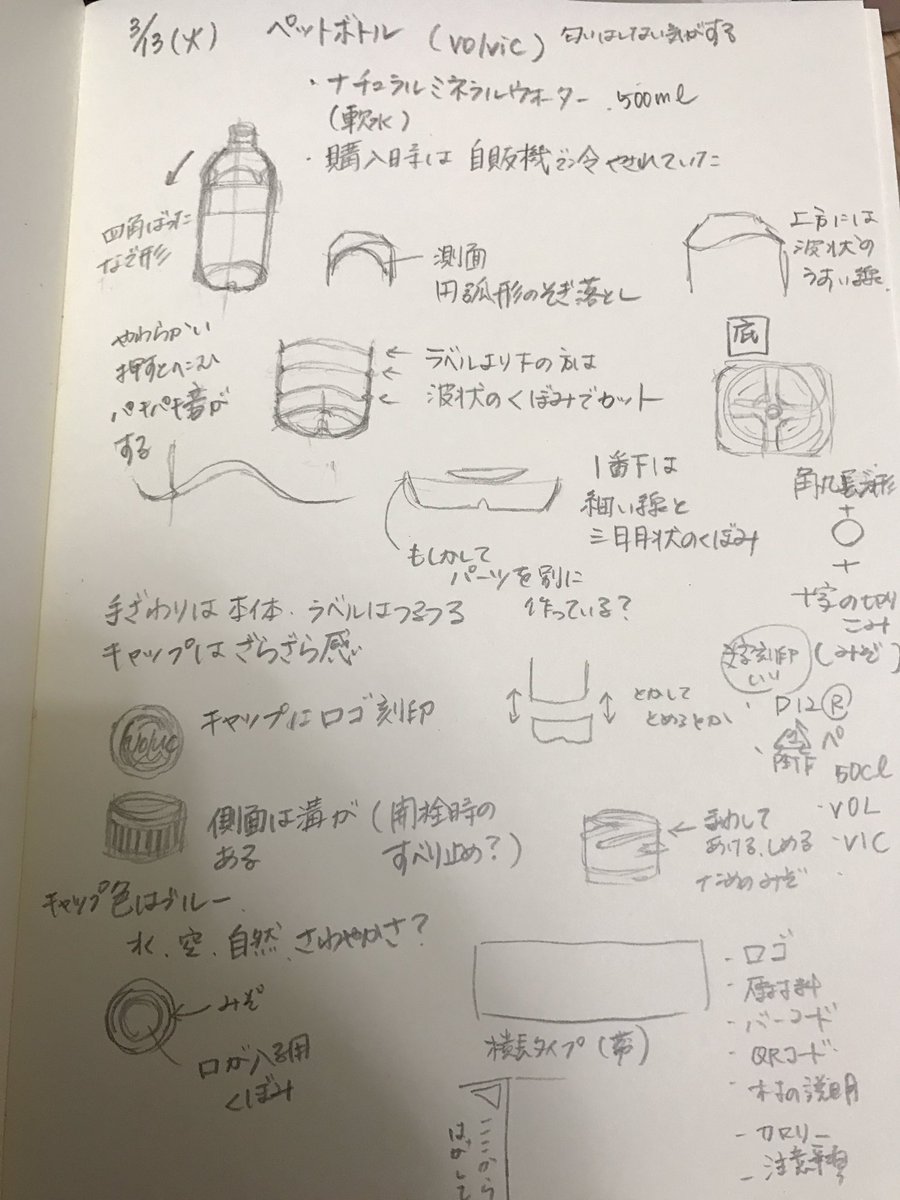 3/13(火) ペットボトル (volvic) 匂いはしない気がする
・ナチュラルミネラルウォーター 500ml
(軟水)
・購入時は自販機で冷やされていた
四角ばった
なで形
測面
円弧形のそぎ落とし
上方には
波状の
うすい線
やわらかい
押すとへこみ
パキパキ音が
する
ラベルより下の方は
波状のくぼみでカット
底
1番下は
細い線と
三日月状のくぼみ
もしかして
パーツを別に
作っている?
角丸長方形
+
○
+
十字の切り
こみ
(みぞ)
文字刻印
いり
・D12Ⓡ
・
50cl
・VOL
・VIC
手ざわりは本体・ラベルはつるつる
キャップはざらざら感
とかして
とめるとか
volvic
キャップにロゴ刻印
側面は溝が
ある
(開栓時の
すべり止め?)
まわして
あける、しめる
ためのみぞ
キャップ色はブルー
水、空、自然、さわやかさ?
みぞ
口が入る用
くぼみ
横長タイプ(帯)
- ロゴ
- 原材料
- バーコード
- QRコード
- 水の説明
- カロリー
- 注意事項
ここから
はがして